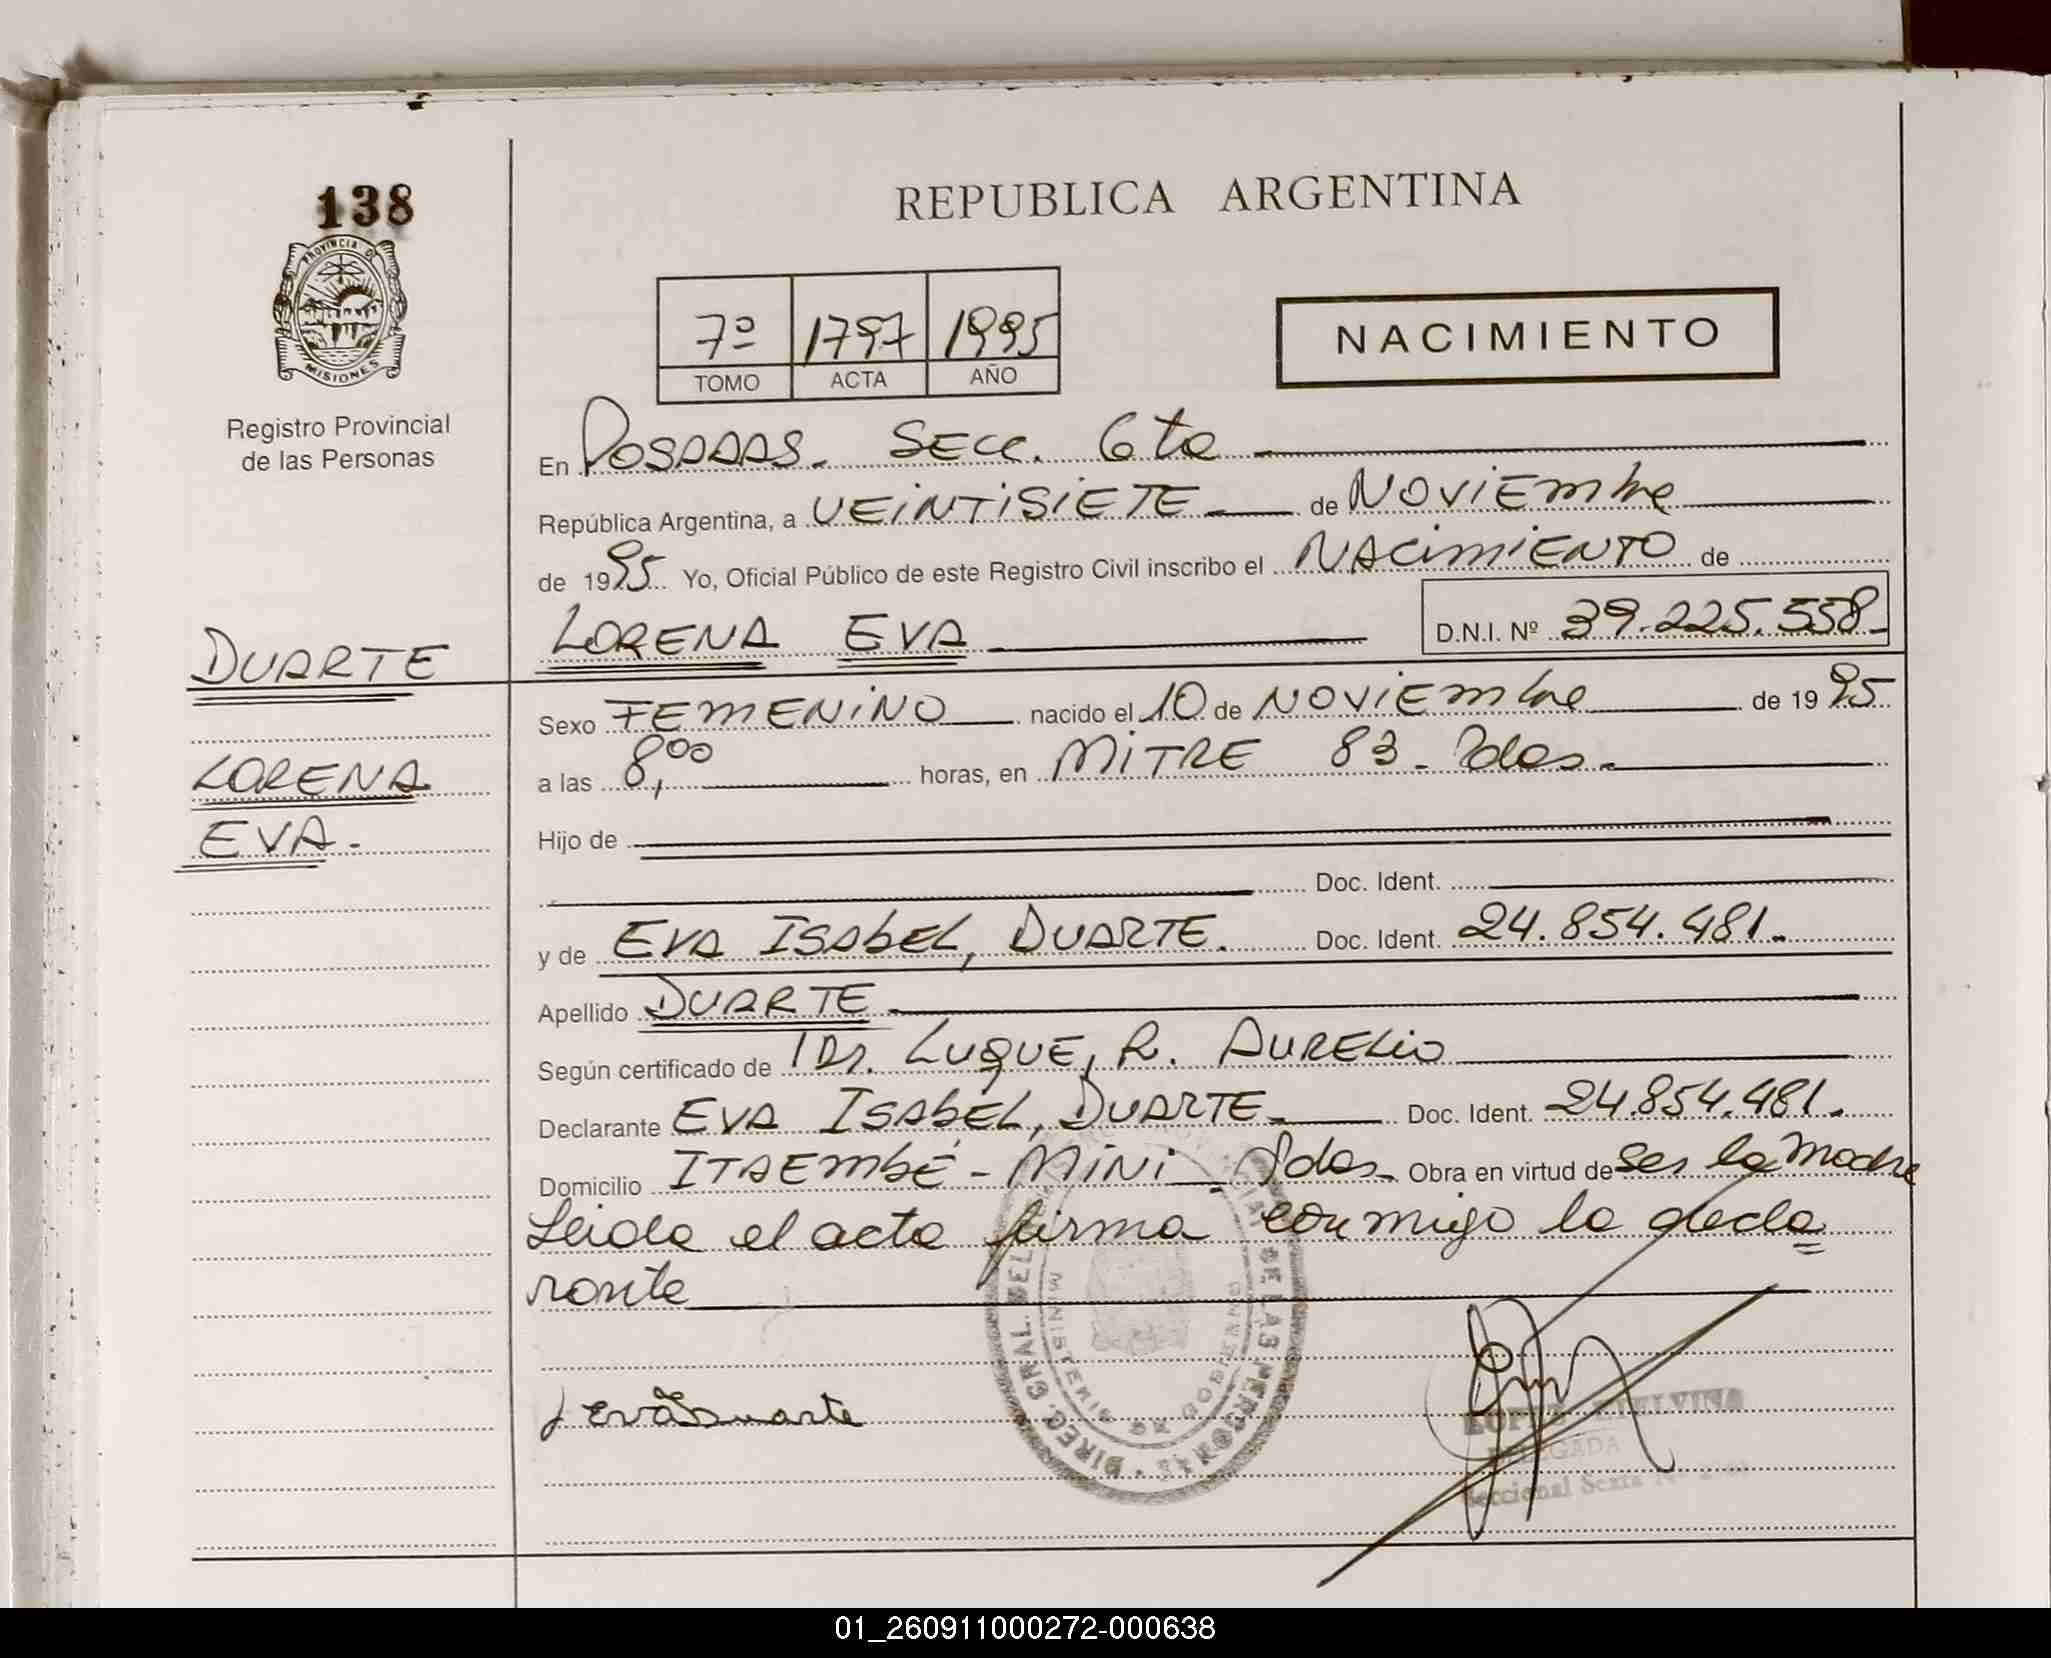 138
PROVINCIA D
MISIONES
Registro Provincial
de las Personas
REPUBLICA ARGENTINA
7º 1797 1995
TOMO ACTA AÑO
NACIMIENTO
En POSADAS. SECC. 6ta
República Argentina, a VEINTISIETE de NOVIEMbre
de 1995 Yo, Oficial Público de este Registro Civil inscribo el NACIMIENTO de
LORENA EVA D.N.I. Nº 39.225.558
DUARTE
LORENA
EVA.
Sexo FEMENINO nacido el 10 de NOVIEMbre de 1995
a las 8,00 horas, en MITRE 83. Pdas.
Hijo de
Doc. Ident.
y de EVA ISAbEL, DUARTE. Doc. Ident. 24.854.481.
Apellido DUARTE
Según certificado de Dr. LUQUE, R. AURELIO
Declarante EVA ISAbEL, DUARTE. Doc. Ident. 24.854.481.
Domicilio ITAEMbÉ-MINI. Pdas. Obra en virtud de Ser la Madre
Leida el acta firma conmigo la decla
rante
DIREC. GRAL. DEL DE LAS PERSONAS
MINISTERIO DE GOBIERNO
Eva Duarte
Seccional Sexta
01_260911000272-000638